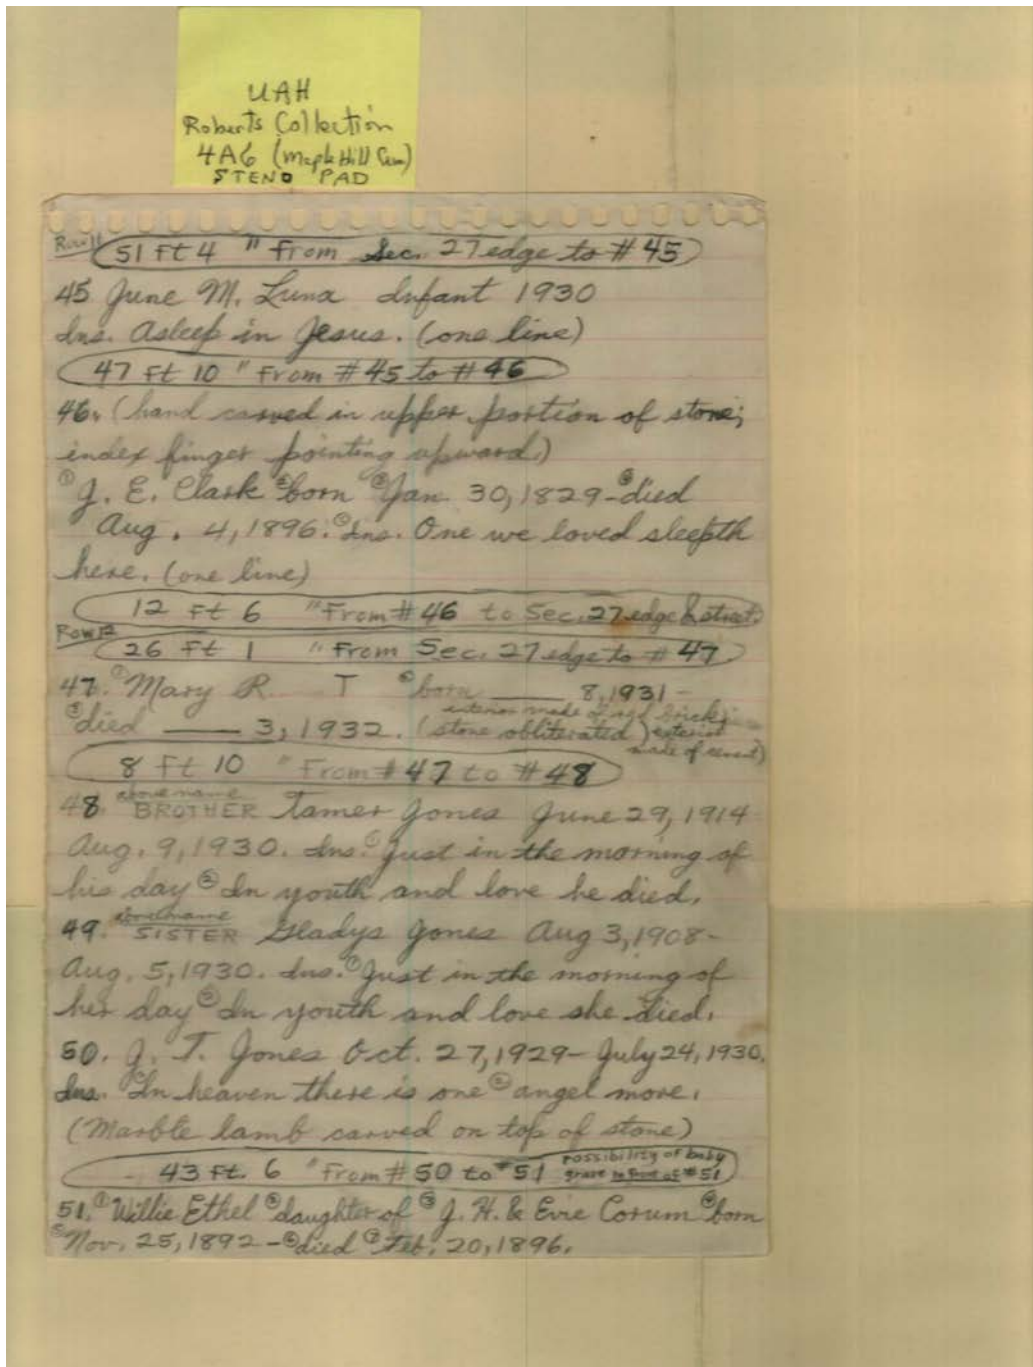 UAH
Roberts Collection
4A6 (Maple Hill Cem)
STENO PAD
Row 11
51 Ft 4 " From Sec. 27 edge to # 45
45 June M. Luna Infant 1930
Ins. Asleep in Jesus. (one line)
47 Ft 10 " From # 45 to # 46
46. (hand carved in upper portion of stone;
index finger pointing upward.)
① J. E. Clark ② born ③ Jan. 30, 1829 – ④ died
Aug. 4, 1896. ⑤ Ins. One we loved sleepth
here. (one line)
12 Ft 6 " From # 46 to Sec. 27 edge & street
Row 12
26 Ft 1 " From Sec. 27 edge to # 47
47. ① Mary R. T ② born ___ 8, 1931 –
interior made of red brick;
③ died ___ 3, 1932. (stone obliterated) exterior
made of cement)
8 Ft 10 " From # 47 to # 48
above name
48. BROTHER Tamer Jones June 29, 1914
Aug. 9, 1930. Ins. ① Just in the morning of
his day ② In youth and love he died.
above name
49. SISTER Gladys Jones Aug 3, 1908 –
Aug. 5, 1930. Ins. ① Just in the morning of
her day ② In youth and love she died.
50. J. T. Jones Oct. 27, 1929 – July 24, 1930.
Ins. ① In heaven there is one ② angel more.
(Marble lamb carved on top of stone)
43 Ft. 6 " From # 50 to # 51 Possibility of baby
grave in front of # 51
51. ① Willie Ethel ② daughter of ③ J. H. & Evie Corum ④ born
⑤ Nov. 25, 1892 – ⑥ died ⑦ Feb. 20, 1896.